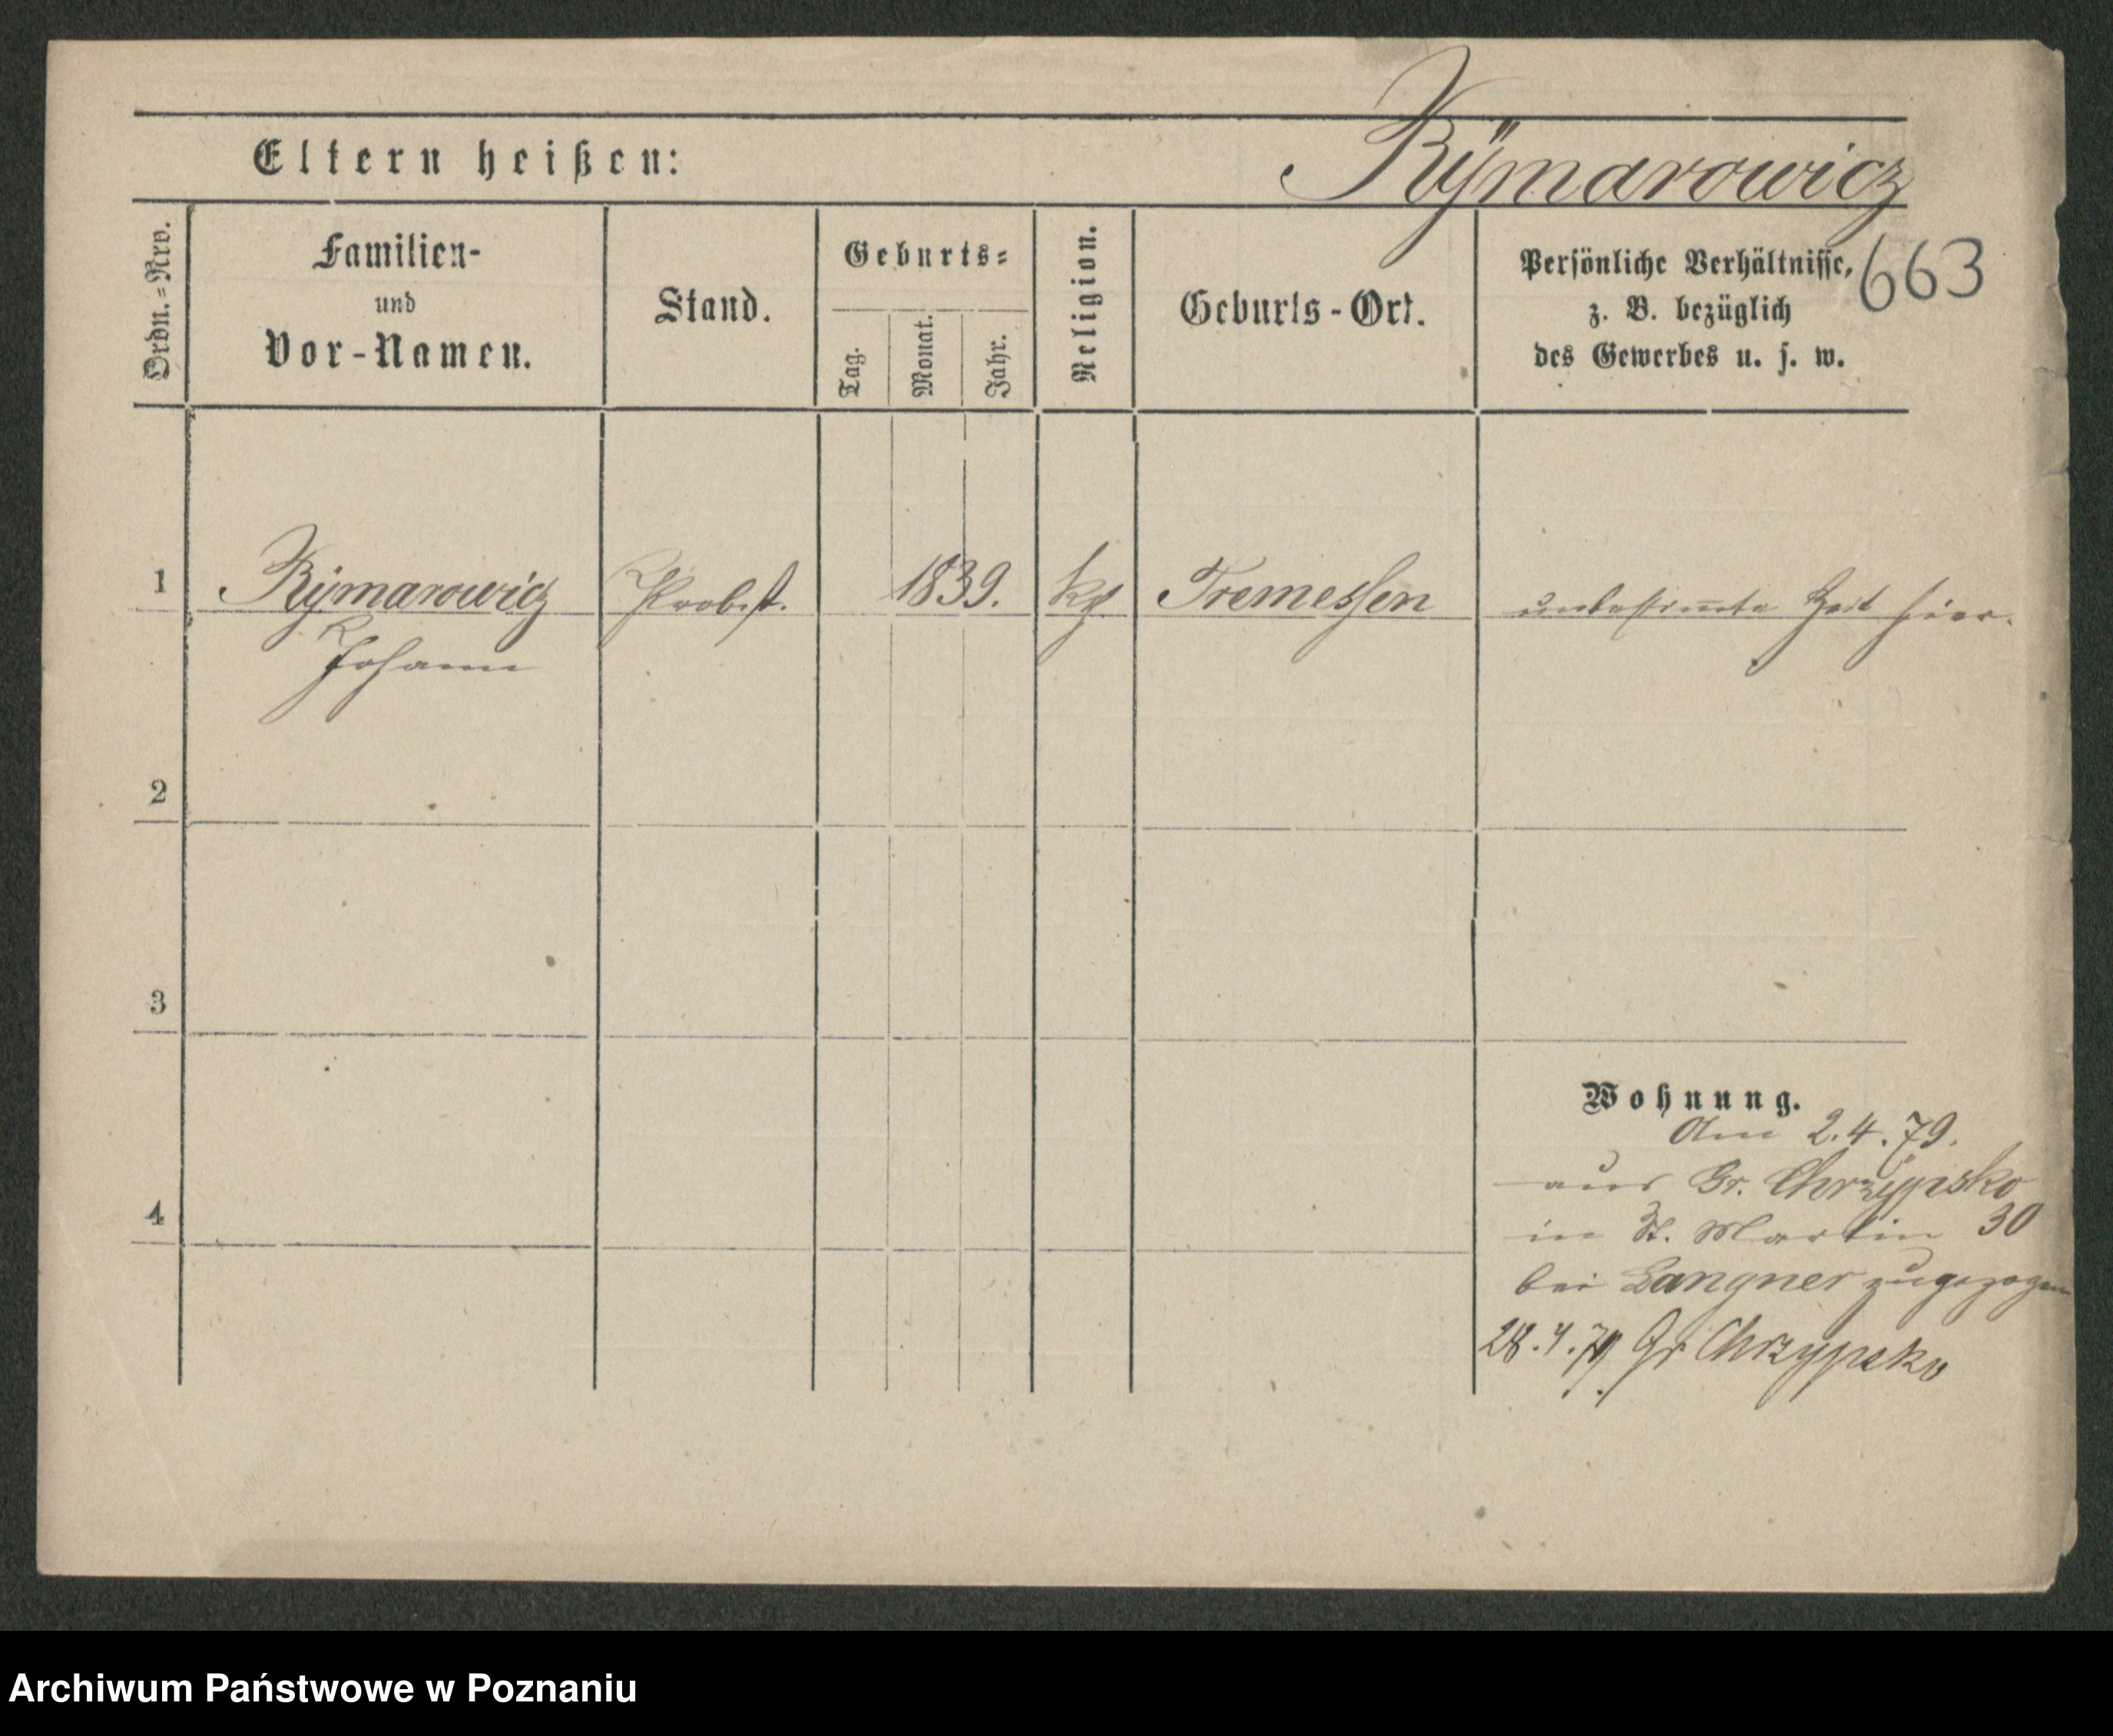 Eltern heißen: Rÿmarowicz
663
Ordn.=Nro.
Familien-
und
Vor-Namen.
Stand.
Geburts=
Tag.
Monat.
Jahr.
Religion.
Geburts-Ort.
Persönliche Verhältnisse,
z. B. bezüglich
des Gewerbes u. s. w.
1 Rÿmarowicz Probst. 1839. Tremessen unbestim̅te Zeit hier.
Johann
2
3
4
Wohnung.
Am 2.4.79.
aus Gr. Chrzÿpsko
in St. Martin 30
bei Langner zugezogen
28.4.79 Gr Chrzypsko
Archiwum Państwowe w Poznaniu